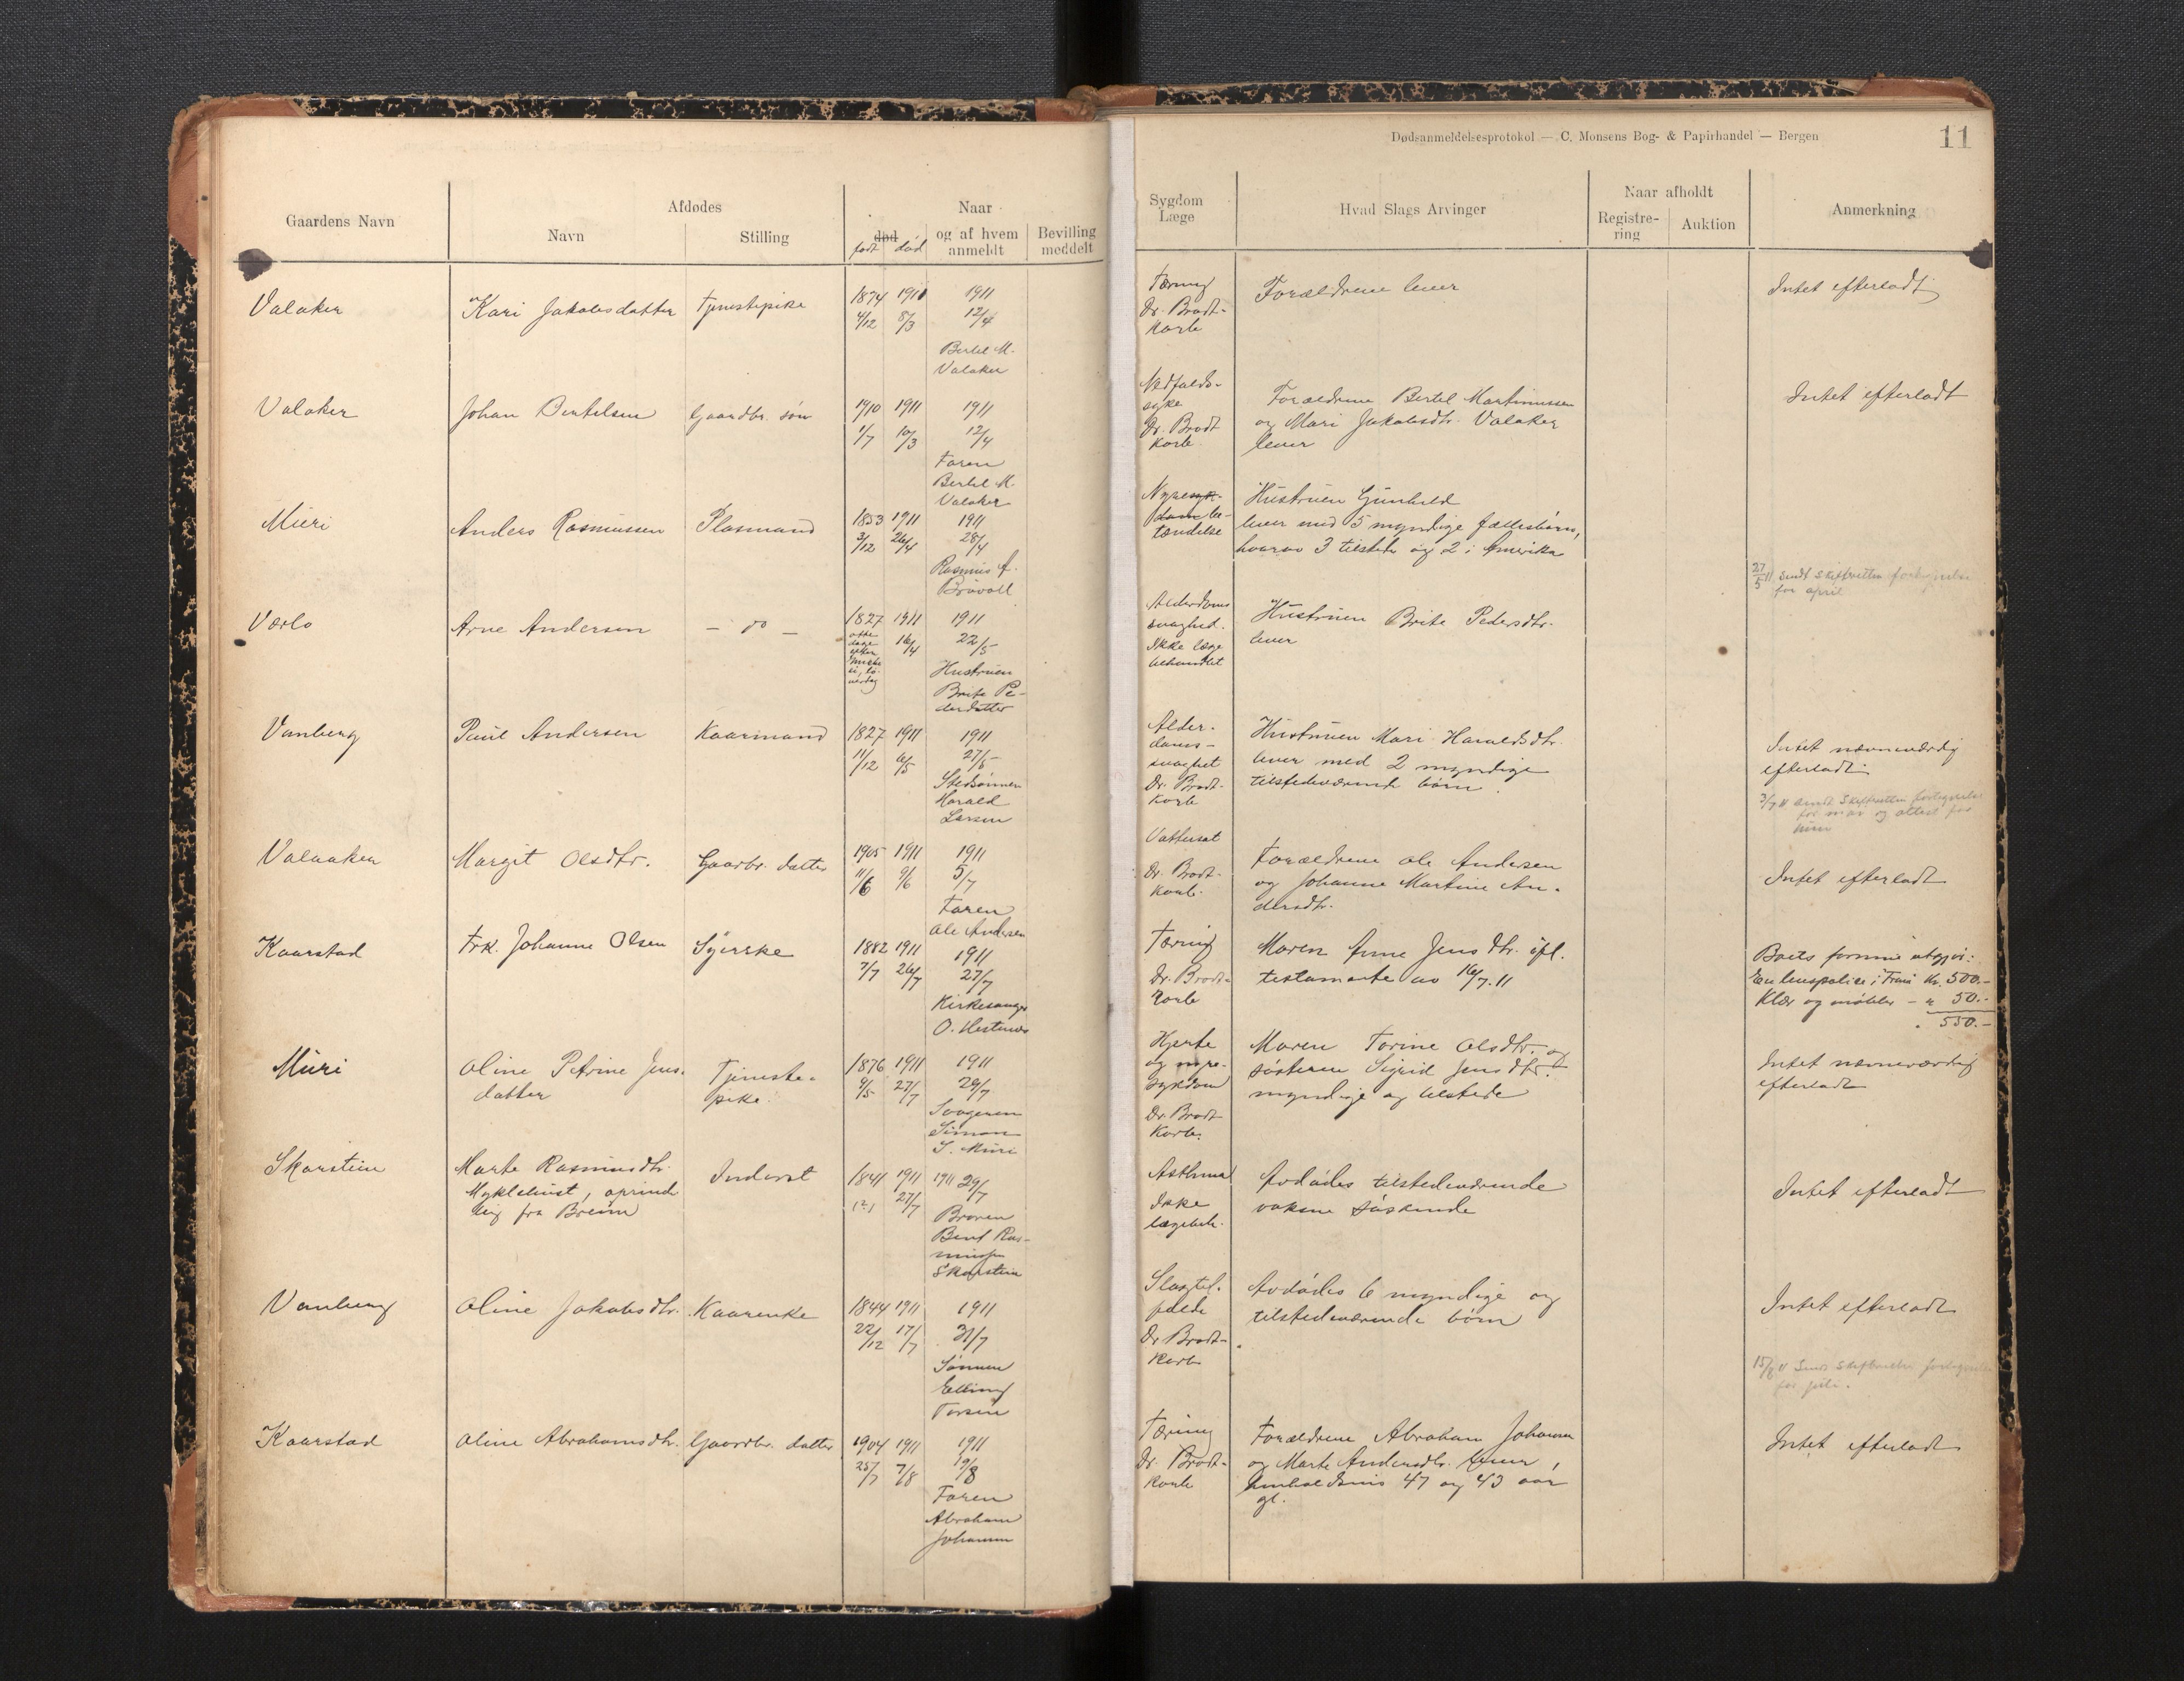 Dødsanmeldelsesprotokol — C. Monsens Bog- & Papirhandel — Bergen
11
Gaardens Navn
Afdødes
Navn
Stilling
Naar
død
født død
og af hvem
anmeldt
Bevilling
meddelt
Sygdom
Læge
Hvad Slags Arvinger
Naar afholdt
Registre-
ring
Auktion
Anmerkning
Valaker
Kari Jakobsdatter
Tjenestepike
1874 1911 1911
4/12 8/3 12/4
Bertel M.
Valaker
Tæring
Dr. Brodt-
korb
Forældrene lever
Intet efterladt
Valaker
Johan Bertelsen
Gaardbr. søn
1910 1911 1911
1/7 10/3 12/4
Faren
Bertel M.
Valaker
Nedfalds-
syke
Dr. Brodt
korb.
Forældrene Bertel Martinussen
og Mari Jakobsdtr. Valaker
lever
Intet efterladt
Muri
Anders Rasmussen
Plasmand
1853 1911 1911
3/12 26/4 28/4
Rasmus A.
Brövoll
Nyresyk-
dom be-
tændelse
Hustruen Gunhild
lever med 5 myndige fællesbørn,
hvorav 3 tilstede og 2 i Amerika
27/5 11 Sendt Skifteretten fortegnelse
for april
Værlo
Arne Andersen
— do —
1827 1911 1911
otte
dage
efter
16/4 22/5
Hustruen
Brite Pe-
dersdatter
Alderdoms
svaghed.
Ikke læge
behandlet
Hustruen Brite Pedersdtr.
lever
Vanberg
Paul Andersen
Kaarmand
1827 1911 1911
11/12 6/5 27/5
Stedsønnen
Harald
Larsen
Alder-
doms-
svaghet
Dr. Brodt-
korb
Hustruen Mari Haraldsdtr.
lever med 2 myndige
tilstedeværende børn.
Intet nævneværdig
efterladt
3/7 11 Sendt Skifteretten fortegnelse
for mai og attest for
juni
Valaaker
Margit Olsdtr.
Gaardbr. datter
1905 1911 1911
11/6 9/6 5/7
Faren
Ole Andersen
Vattersot
Dr. Brodt-
korb.
Forældrene Ole Andersen
og Johanne Martine An-
dersdtr.
Intet efterladt
Kaarstad
Frk. Johanne Olsen
Syerske
1882 1911 1911
7/7 26/7 27/7
Kirkesanger
O. Hestenes
Tæring
Dr. Brodt-
korb
Maren Anne Jensdtr. ifl.
testamente av 16/7.11
Boets formue utgjör:
En livspolise i Fram Kr. 500.-
Klær og møbler — " 50.-
550.-
Muri
Oline Petrine Jens-
datter
Tjeneste-
pike
1876 1911 1911
9/5 27/7 29/7
Svogeren
Simon
S. Muri
Hjerte
og nyre-
sykdom
Dr. Brodt
korb.
Moren Torine Olsdtr. og
søsteren Sigrid Jensdtr.
myndige og tilstede
Intet nævneværdig
efterladt
Skarstein
Marte Rasmusdtr.
Myklebust, oprinde
lig fra Breim
Inderst
1841 1911 1911 29/7
(?) 27/7
Broren
Bent Ras-
mussen
Skarstein
Asthma
Ikke
lægebeh.
Avdødes tilstedeværende
voksne søskende
Intet efterladt
Vanberg
Oline Jakobsdtr.
Kaarenke
1844 1911 1911
22/12 17/7 31/7
Sønnen
Elling
Slagtil-
fælde
Dr. Brodt-
korb
Avdødes 6 myndige og
tilstedeværende børn
Intet efterladt
15/8 11 Sendt Skifteretten fortegnelse
for juli.
Kaarstad
Oline Abrahamsdtr.
Gaardbr. datter
1904 1911 1911
25/7 7/8 19/8
Faren
Abraham
Johansen
Tæring
Dr. Brodt-
korb
Forældrene Abraham Johansen
og Marte Andersdtr. lever,
henholdsvis 47 og 43 aar
gl.
Intet efterladt